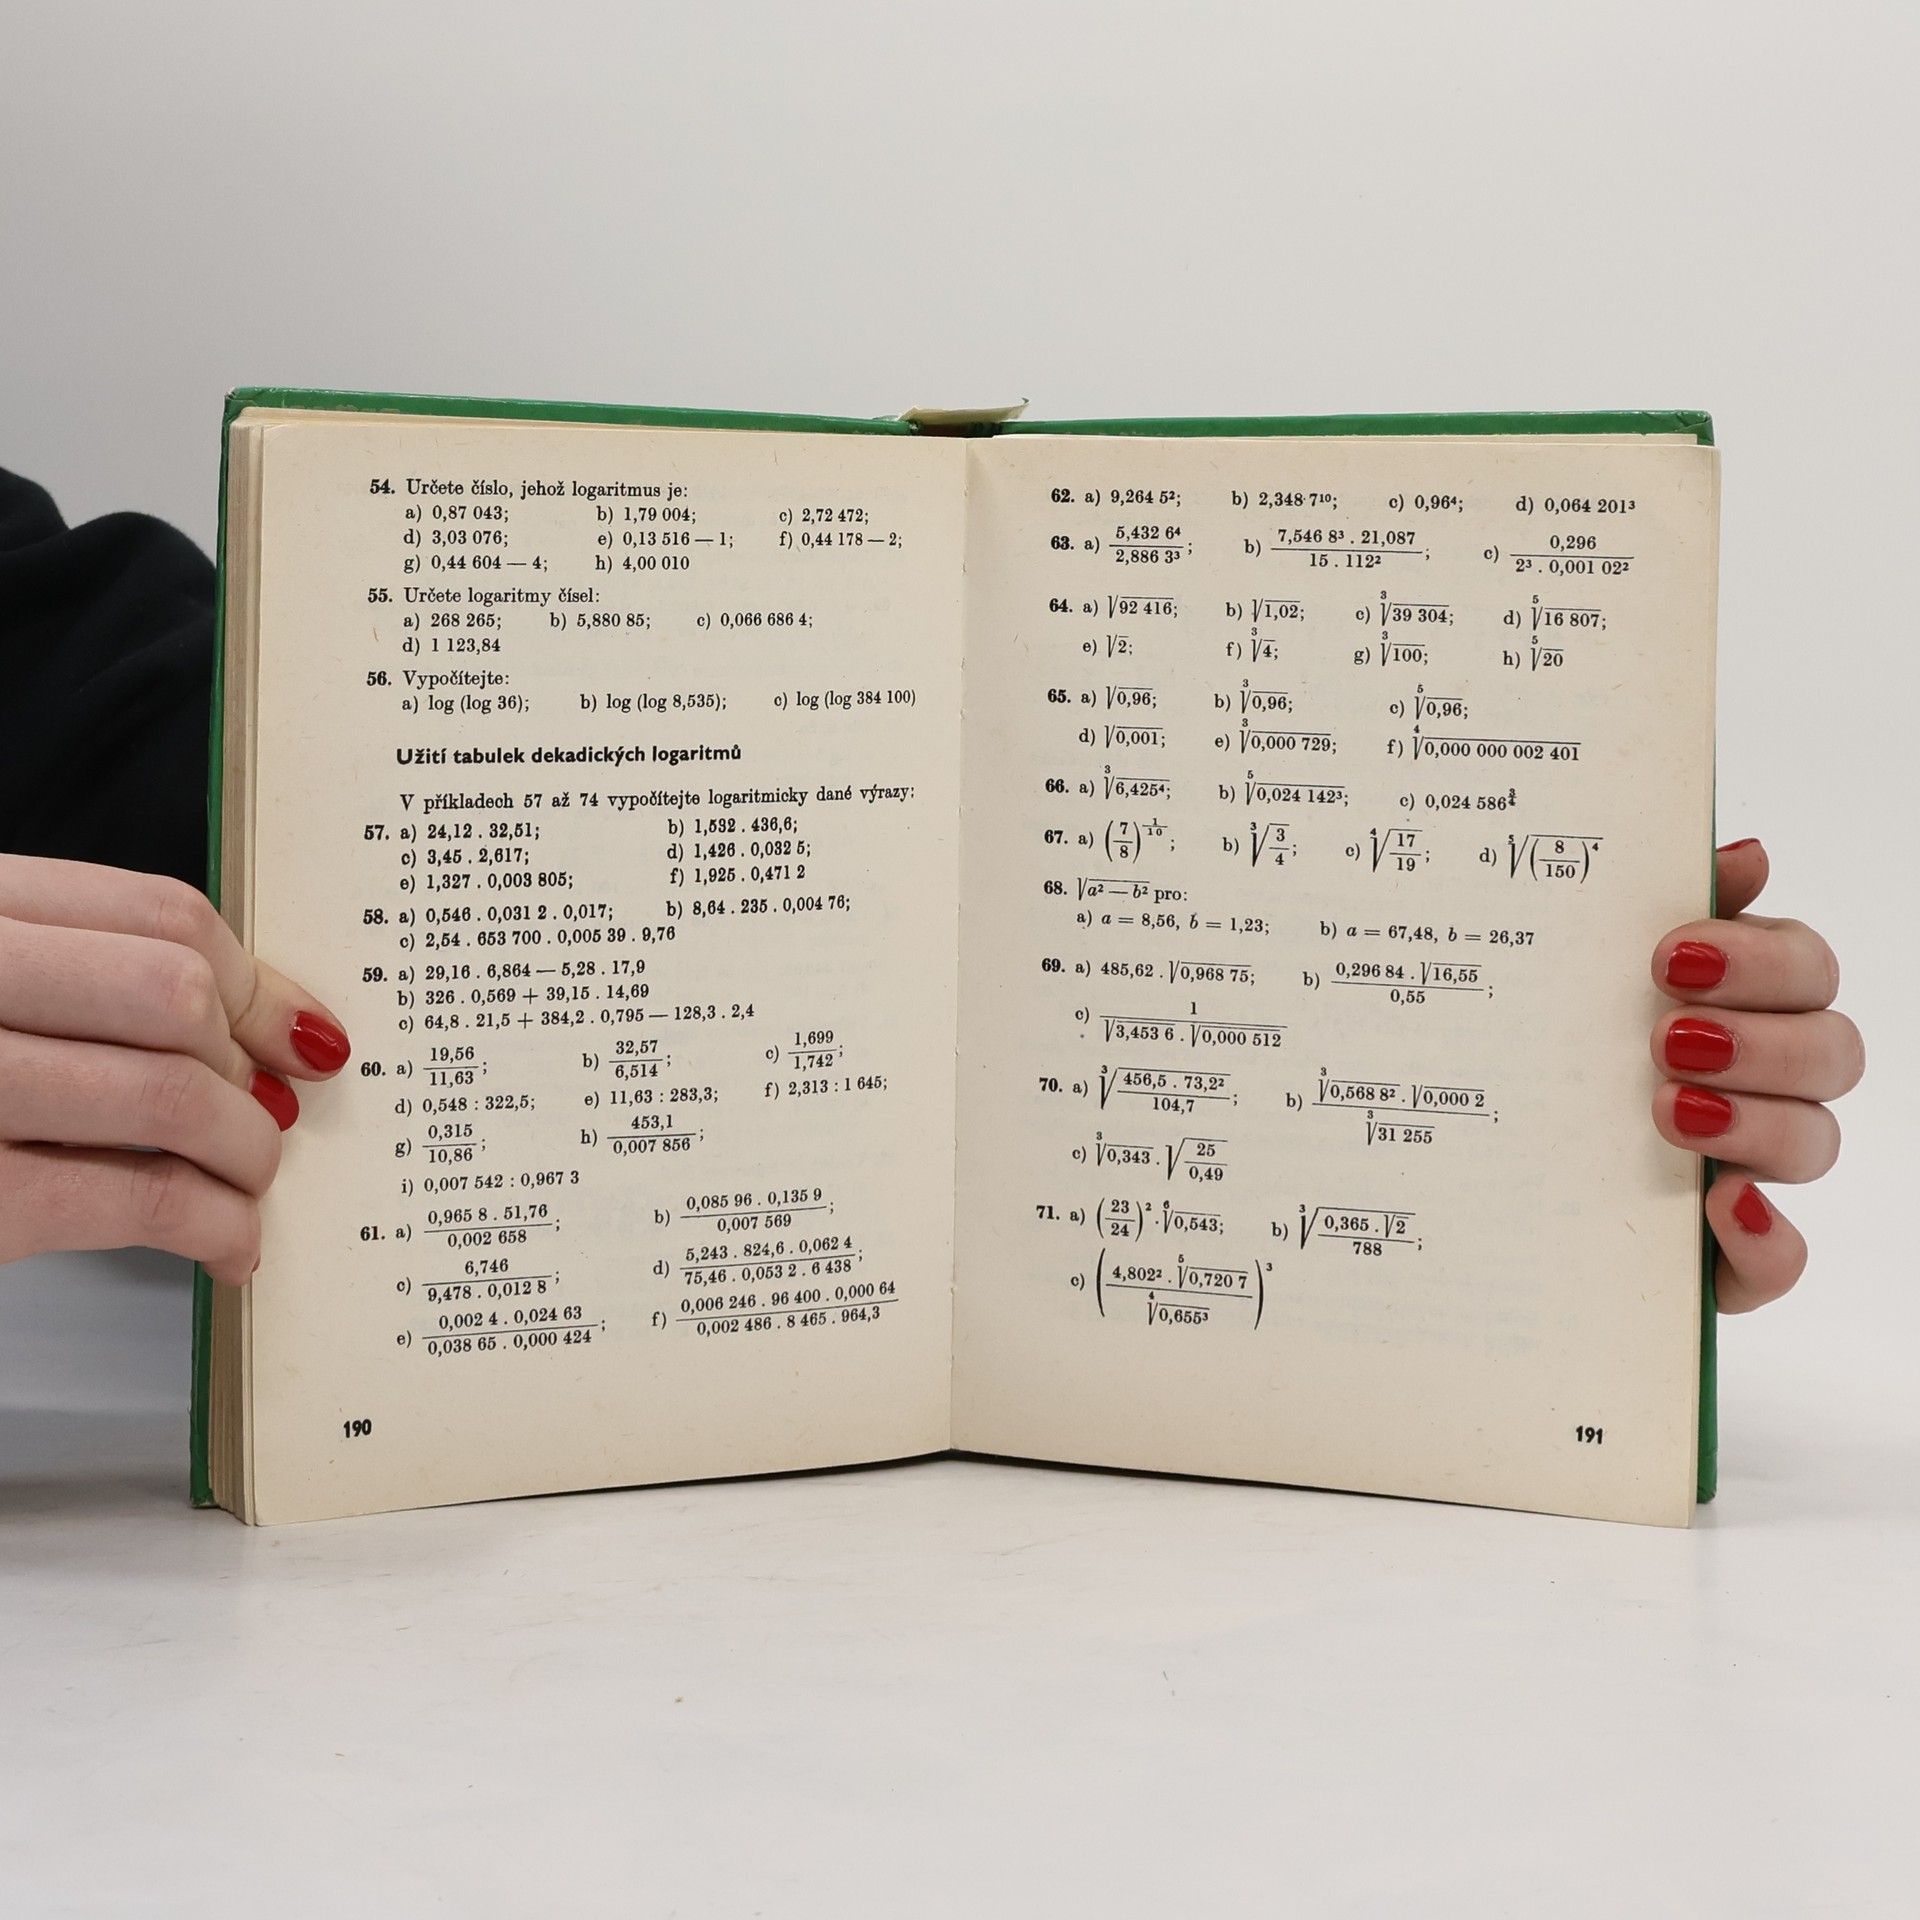 54. Určete číslo, jehož logaritmus je:
a) 0,87 043; b) 1,79 004; c) 2,72 472;
d) 3,03 076; e) 0,13 516 — 1; f) 0,44 178 — 2;
g) 0,44 604 — 4; h) 4,00 010
55. Určete logaritmy čísel:
a) 268 265; b) 5,880 85; c) 0,066 686 4;
d) 1 123,84
56. Vypočítejte:
a) log (log 36); b) log (log 8,535); c) log (log 384 100)
Užití tabulek dekadických logaritmů
V příkladech 57 až 74 vypočítejte logaritmicky dané výrazy:
57. a) 24,12 . 32,51; b) 1,532 . 436,6;
c) 3,45 . 2,617; d) 1,426 . 0,032 5;
e) 1,327 . 0,003 805; f) 1,925 . 0,471 2
58. a) 0,546 . 0,031 2 . 0,017; b) 8,64 . 235 . 0,004 76;
c) 2,54 . 653 700 . 0,005 39 . 9,76
59. a) 29,16 . 6,864 — 5,28 . 17,9
b) 326 . 0,569 + 39,15 . 14,69
c) 64,8 . 21,5 + 384,2 . 0,795 — 128,3 . 2,4
60. a) 19,56/11,63; b) 32,57/6,514; c) 1,699/1,742;
d) 0,548 : 322,5; e) 11,63 : 283,3; f) 2,313 : 1 645;
g) 0,315/10,86; h) 453,1/0,007 856;
i) 0,007 542 : 0,967 3
61. a) (0,965 8 . 51,76)/(0,002 658); b) (0,085 96 . 0,135 9)/(0,007 569);
c) 6,746/(9,478 . 0,012 8); d) (5,243 . 824,6 . 0,062 4)/(75,46 . 0,053 2 . 6 438);
e) (0,002 4 . 0,024 63)/(0,038 65 . 0,000 424); f) (0,006 246 . 96 400 . 0,000 64)/(0,002 486 . 8 465 . 964,3)
190
62. a) 9,264 5²; b) 2,348 7¹⁰; c) 0,96⁴; d) 0,064 201³
63. a) 5,432 6⁴/2,886 3³; b) (7,546 8³ . 21,087)/(15 . 112²); c) 0,296/(2³ . 0,001 02²)
64. a) √92 416; b) √1,02; c) ³√39 304; d) ⁵√16 807;
e) √2; f) ³√4; g) ³√100; h) ⁵√20
65. a) √0,96; b) ³√0,96; c) ⁵√0,96;
d) √0,001; e) ³√0,000 729; f) ⁴√0,000 000 002 401
66. a) ³√6,425⁴; b) ⁵√0,024 142³; c) 0,024 586^(3/4)
67. a) (7/8)^(1/10); b) ³√(3/4); c) ⁴√(17/19); d) ⁵√(8/150)⁴
68. √(a² — b²) pro:
a) a = 8,56, b = 1,23; b) a = 67,48, b = 26,37
69. a) 485,62 . √0,968 75; b) (0,296 84 . √16,55)/0,55;
c) 1/(√3,453 6 . √0,000 512)
70. a) ³√((456,5 . 73,2²)/104,7); b) (³√0,568 8² . √0,000 2)/³√31 255;
c) ³√0,343 . √(25/0,49)
71. a) (23/24)² . ⁶√0,543; b) ³√((0,365 . √2)/788);
c) ((4,802² . ⁵√0,720 7)/⁴√0,655³)³
191